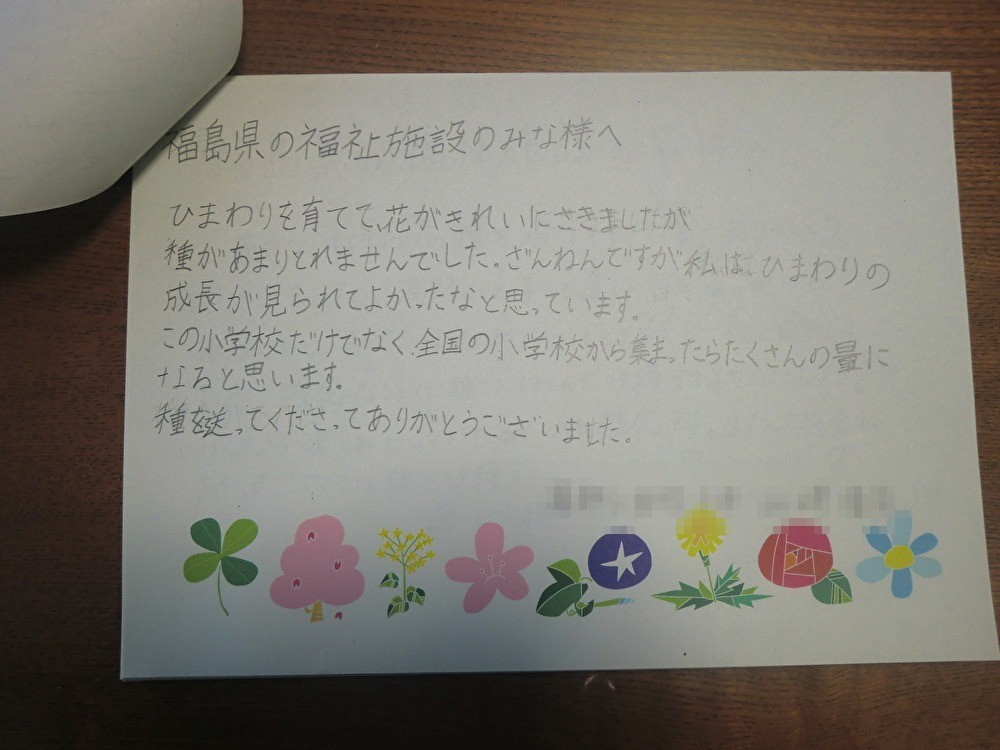 福島県の福祉施設のみな様へ
ひまわりを育てて、花がきれいにさきましたが
種があまりとれませんでした。ざんねんですが私は、ひまわりの
成長が見られてよかったなと思っています。
この小学校だけでなく、全国の小学校から集まったらたくさんの量に
なると思います。
種を送ってくださってありがとうございました。